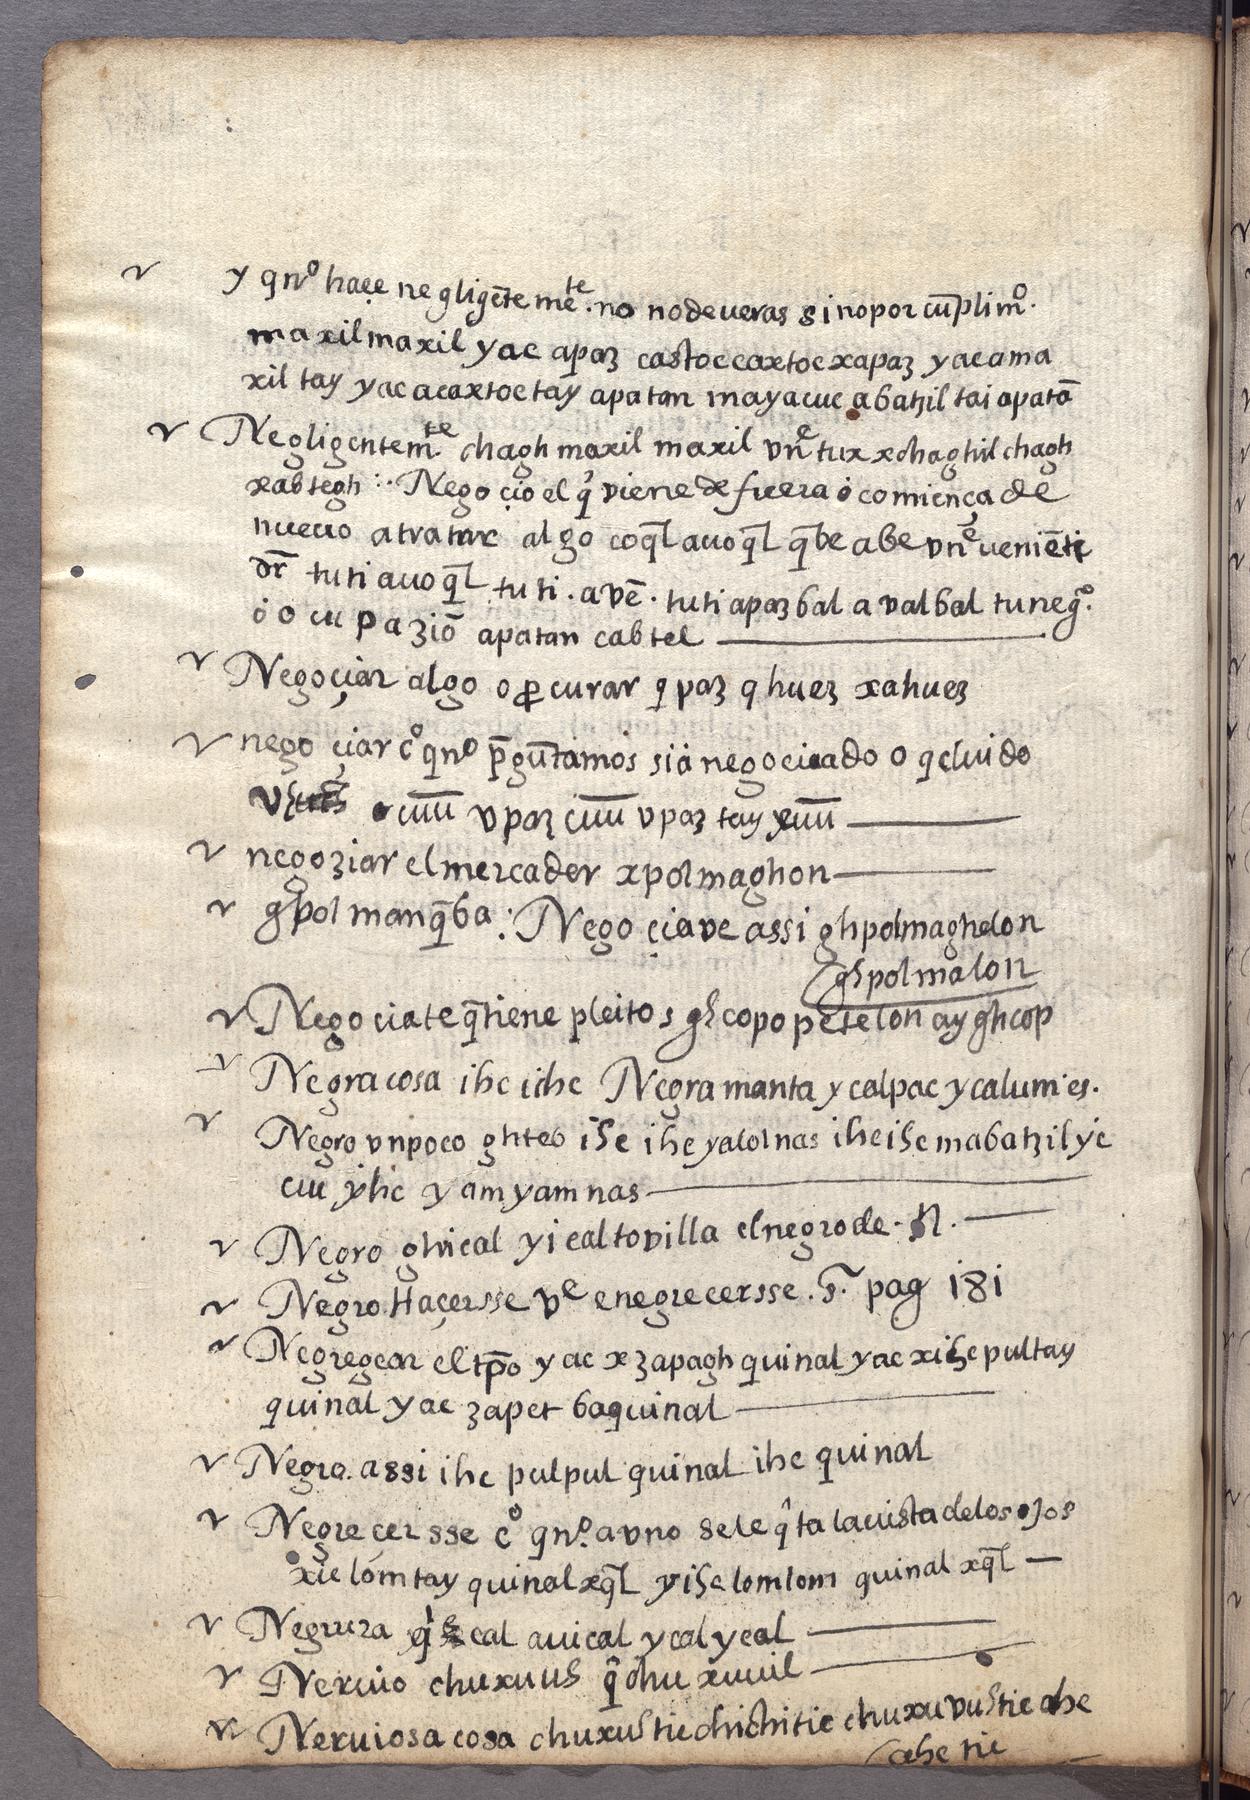 y qnº haçe negligēte mēte. no nodeueras sinopor cūplimº.
maxilmaxil yac apaʒ castoc caxtoc xapaʒ yacama
xil tay yac acaxtoctay apatan mayacuc abatʒil tai apatā
Negligentemte chagh maxil maxil vne tux xchaghil chagh
xabtegh :· Negoçio el q̄ viene de fuera ó comiença de
nueuo atratar algo coq̄l auoq̄l q̄be abe vne ueniēti
dr̄ tuti auoq̄l tuti. avē. tuti apaʒbal a valbal tunegº.
ó o cupaʒiō apatan cabtel
Negoçiar algo o ꝓcurar q paʒ q hueʒ xahueʒ
negoçiar cº qnº p̄gūtamos si ā negociado o q cluido
cuū vpaʒ cuū vpaʒ tay xuū
negoʒiar el mercader xpolmaghon
ghpolmanq̄ba: Negoçiave assi ghpolmaghelon
ghpolmalon
Negociate q̄ tiene pleitos gh copo petelon ay ghcop
Negra cosa ihc ihc Negra manta ycalpac ycalumes.
Negro vn poco ghteb ihc ihc yalolnas ihc ihc mabatʒil yc
cuc yhc yam yam nas
Negro ghical yical tovilla el negro de. N.
Negro Haçersse ve enegrecersse. S. pag 181
Negregear el tp̄o yac xʒapagh quinal yac xihc pultay
quinal yac ʒapet baquinal
Negro assi ihc pulpul quinal ihc quinal
Negreçersse cº qnº. avno sele q̄ta lauista delos ojos
xic lomtay quinal xq̄l yihc lomlom quinal xq̄l
Negrura cal auical ycal yeal
Neruio chuxuuh q̄ chu xuuil
Neruiosa cosa chuxuhtic chichitic chuxuvuhtic che
che tic